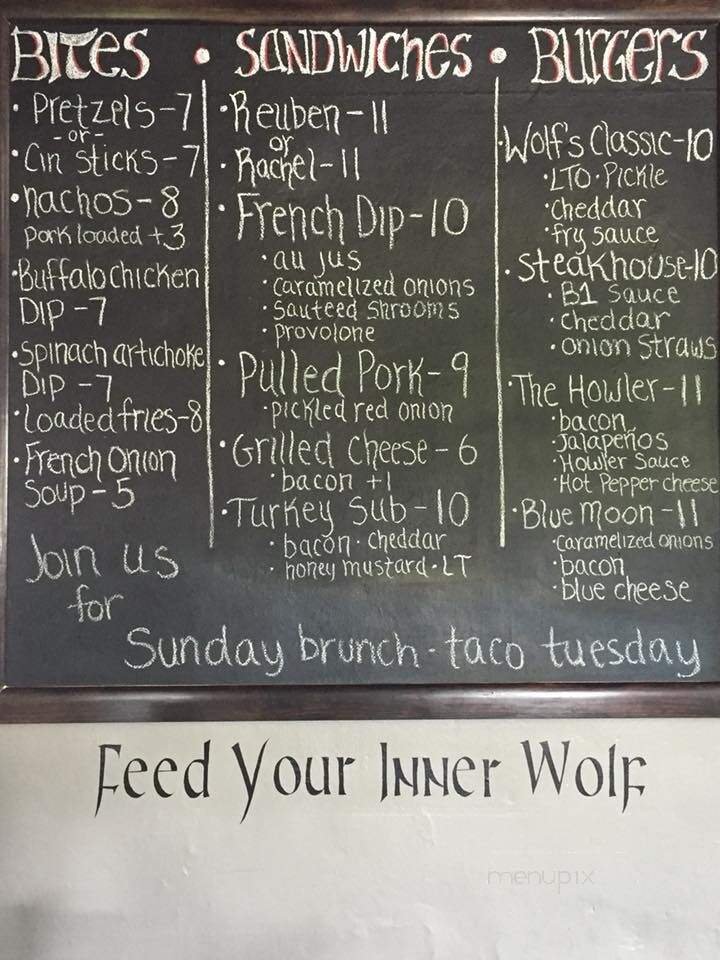 BITES • SANDWICHES • BURGERS
• Pretzels-7
-or-
• Cin Sticks-7
• nachos-8
pork loaded +3
• Buffalo chicken
DIP-7
• Spinach artichoke
DIP-7
• Loaded fries-8
• French Onion
Soup-5
• Reuben-11
or
• Rachel-11
• French Dip-10
• au jus
• caramelized onions
• sauteed shrooms
• provolone
• Pulled Pork-9
• pickled red onion
• Grilled Cheese-6
• bacon +1
• Turkey Sub-10
• bacon • cheddar
• honey mustard • LT
• Wolf's Classic-10
• LTO • Pickle
• cheddar
• fry sauce
• Steakhouse-10
• B1 Sauce
• cheddar
• onion straws
• The Howler-11
• bacon
• Jalapeños
• Howler Sauce
• Hot Pepper cheese
• Blue Moon-11
• caramelized onions
• bacon
• blue cheese
Join us
for
Sunday brunch - taco tuesday
Feed Your Inner Wolf
menupix